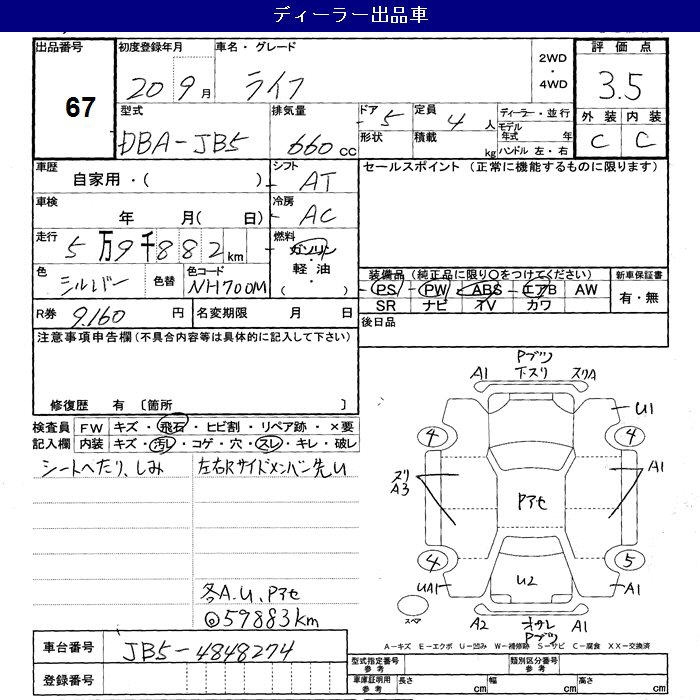 ディーラー出品車
出品番号 初度登録年月 車名・グレード 2WD ・ 4WD 評価点
67 20 9月 ライフ 3.5
型式 排気量 ドア 5 定員 4人 ディーラー・並行 外装 内装
DBA-JB5 660cc 形状 積載 kg モデル年式 年 C C
ハンドル 左・右
車歴 シフト セールスポイント (正常に機能するものに限ります)
自家用・( ) AT
車検 冷房
年 月( 日) AC
走行 5万9千882km 燃料 ガソリン
色 シルバー 色替 色コード NH700M 軽油 ・ ( )
装備品 (純正品に限り○をつけてください) 新車保証書
PS PW ABS エアB AW 有・無
SR ナビ オV カワ
R券 9,160円 名変期限 月 日 後日品
注意事項申告欄 (不具合内容等は具体的に記入して下さい)
修復歴 有 〔箇所 〕
検査員 FW キズ・飛石・ヒビ割・リペア跡・×要
記入欄 内装 キズ・汚レ・コゲ・穴・スレ・キレ・破レ
シートへたり、しみ 左右Rサイドメンバン先U
各A.U、Pアセ
◎59883km
Pブツ
A1 下スリ スリA
U1
4 4
スリ A3 A1
Pアセ
4 5
UA1 U2 A1
スペア A2 オサレ A1
Pブツ
A-キズ E-エクボ U-凹み W-補修跡 S-サビ C-腐食 XX-交換済
車台番号 JB5-4848274
型式指定番号 参考 類別区分番号 参考
登録番号
車庫証明用 参考 長さ cm 幅 cm 高さ cm